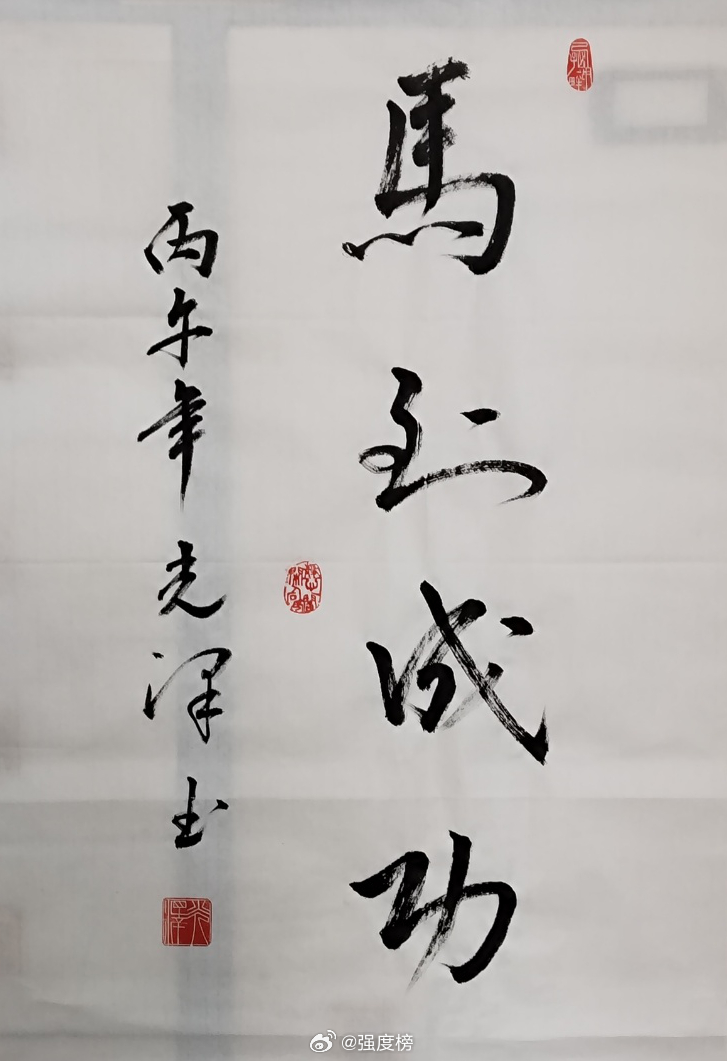 馬到成功
丙午年光澤书
光澤
@强度榜